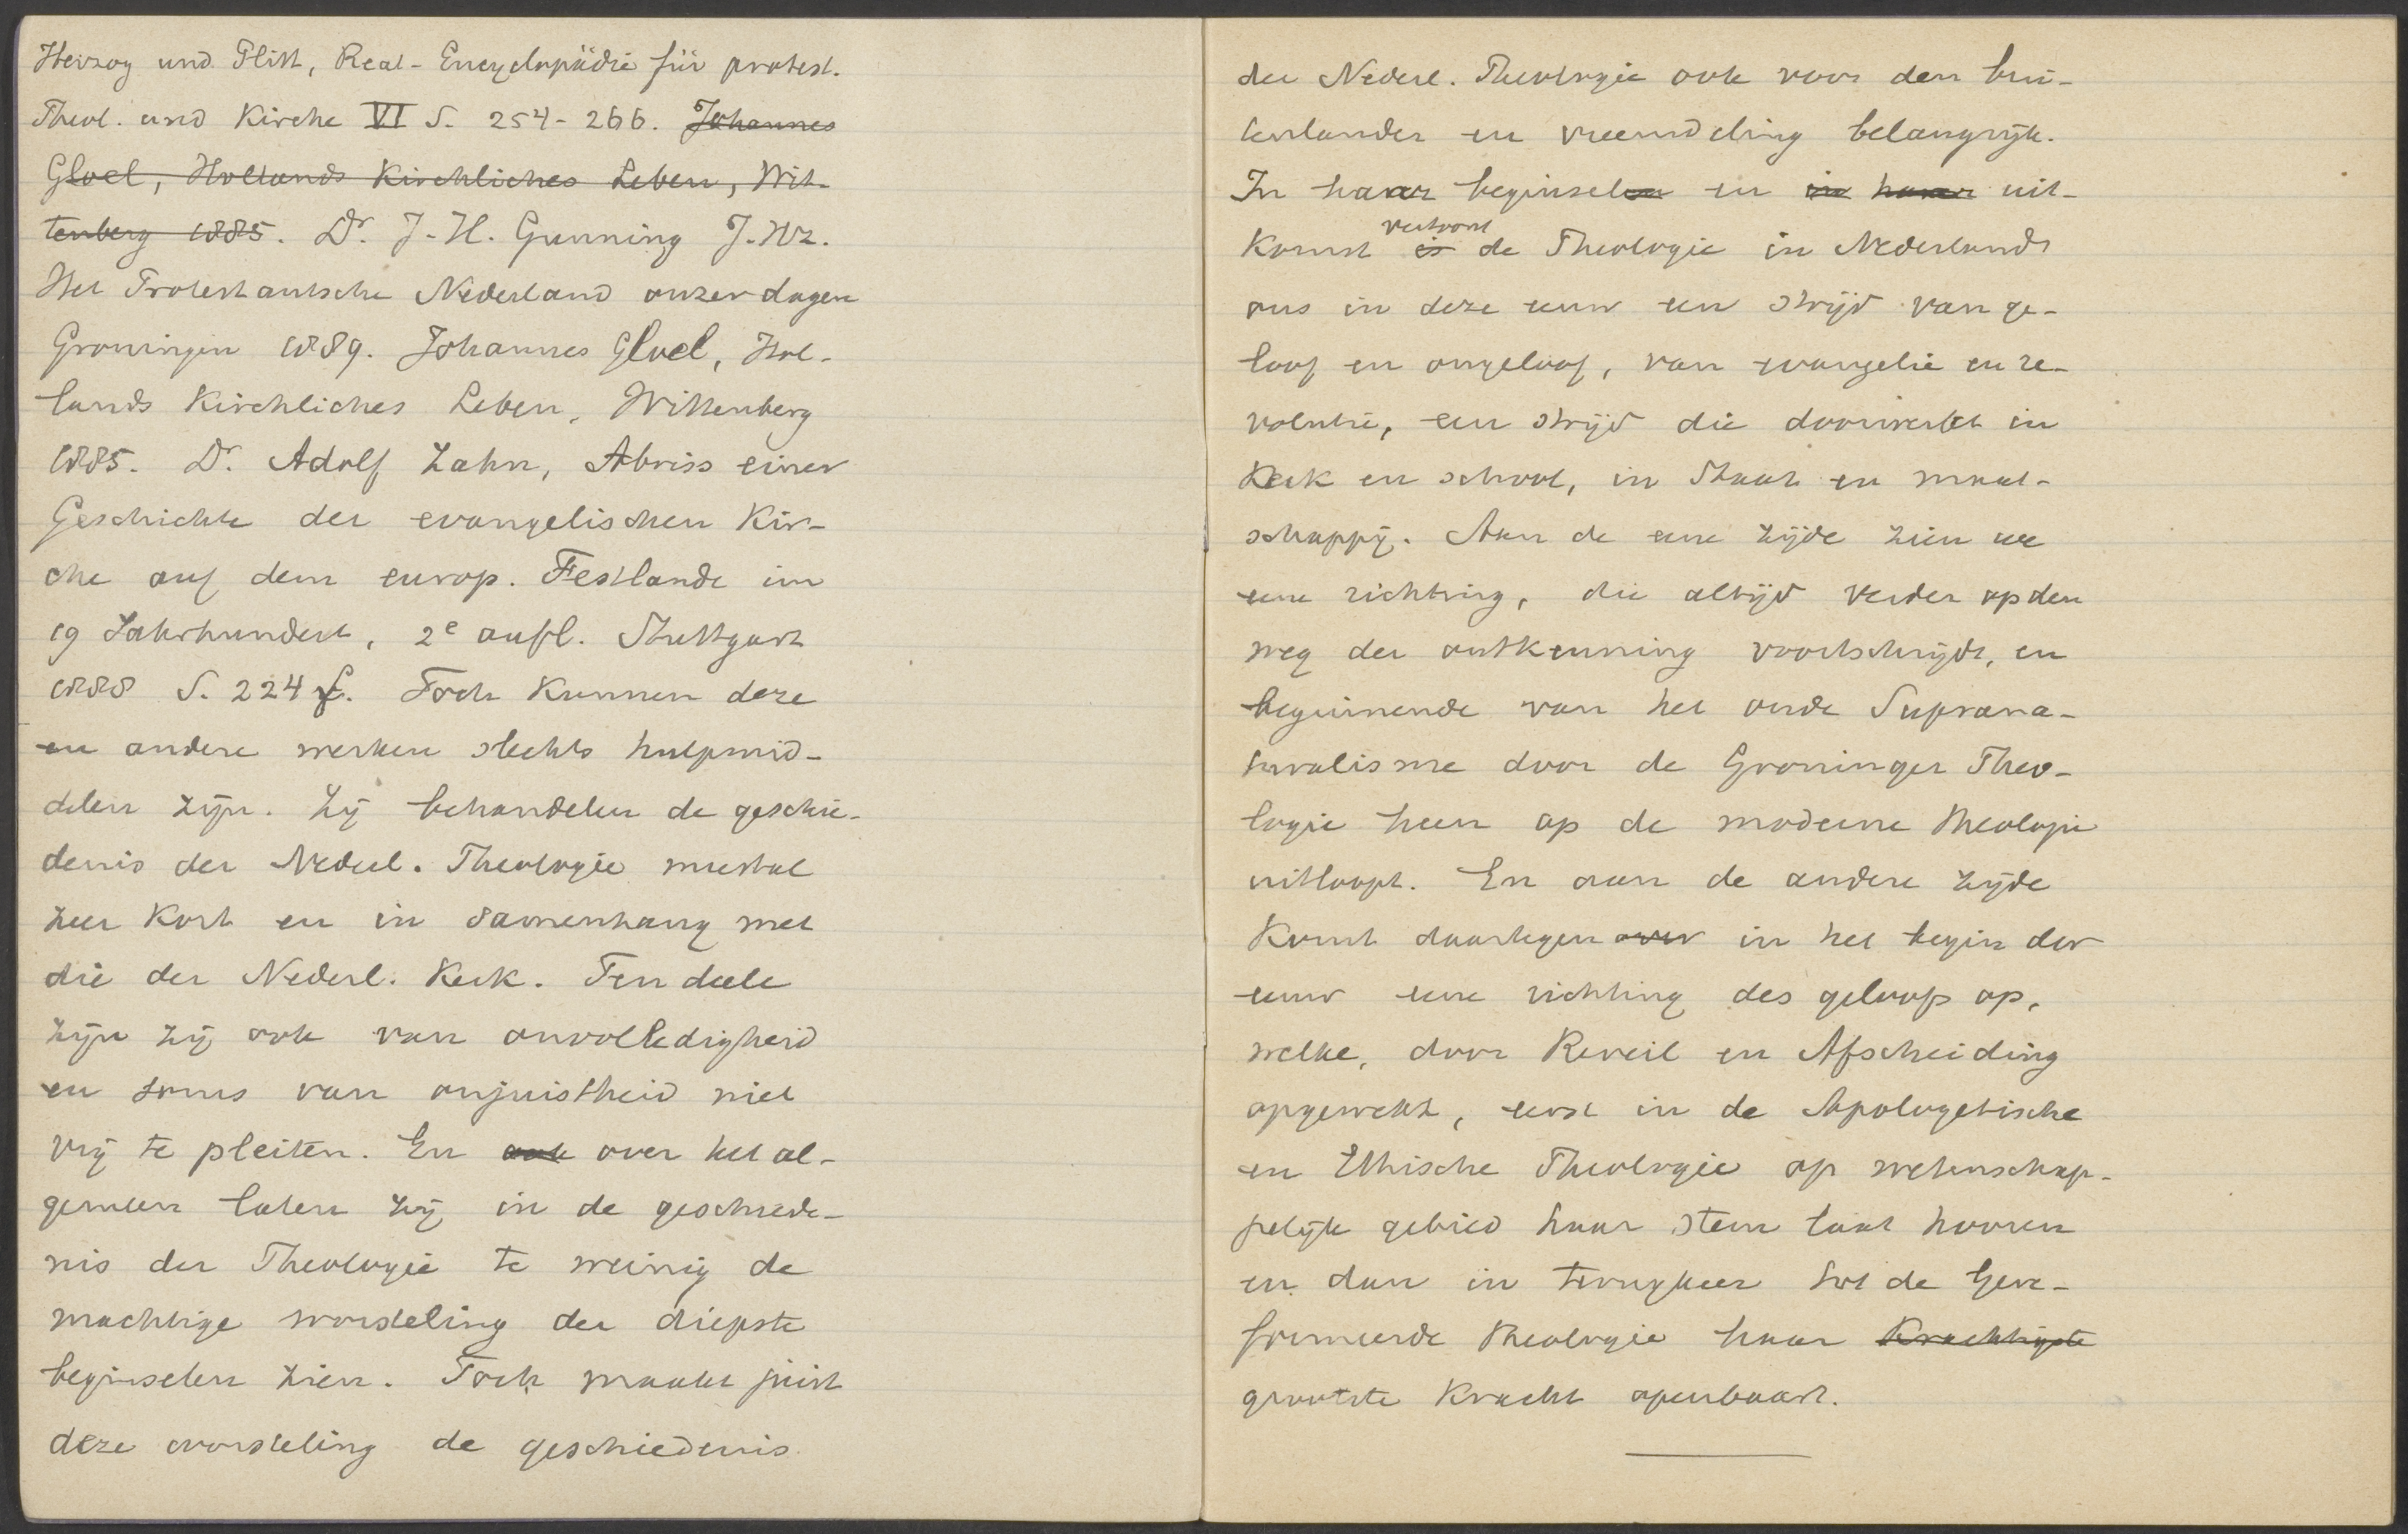 Herzog und Plitt, Real-Encyclopädie für protest.
Theol. und Kirche VI S. 254-266. Johannes
Gloel, Hollands Kirchliches Leben, Wit-
tenberg 1885. Dr. J.H. Gunning J.Hz.
Het Protestantsche Nederland onzer dagen
Groningen 1889. Johannes Gloel, Hol-
lands Kirchliches Leben, Wittenberg
1885. Dr. Adolf Zahn, Abriss einer
Geschichte der evangelischen Kir-
che auf dem europ. Festlande im
19 Jahrhundert, 2e aufl. Stuttgart
1888 S. 224 f. Toch kunnen deze
en andere werken slechts hulpmid-
delen zijn. Zij behandelen de geschie-
denis der Nederl. Theologie meestal
zeer kort en in samenhang met
die der Nederl. Kerk. Ten deele
zijn zij ook van onvolledigheid
en soms van onjuistheid niet
vrij te pleiten. En ook over het al-
gemeen laten zij in de geschiede-
nis der Theologie te weinig de
machtige worsteling der diepste
beginselen zien. Toch maakt juist
deze worsteling de geschiedenis
der Nederl. Theologie ook voor den bui-
tenlander en vreemdeling belangrijk.
In haar beginselen en in haar uit-
komst is vertoont de Theologie in Nederland
ons in deze eeuw een strijd van ge-
loof en ongeloof, van evangelie en re-
volutie, een strijd die doorwerkt in
Kerk en school, in Staat en maat-
schappij. Aan de eene zijde zien we
eene richting, die altijd verder op den
weg der ontkenning voortschrijdt, en
beginnende van het oude Suprana-
turalisme door de Groninger Theo-
logie heen op de moderne Theologie
uitloopt. En aan de andere zijde
komt daartegen over in het begin der
eeuw eene richting des geloofs op,
welke, door Reveil en Afscheiding
opgewekt, eerst in de Apologetische
en Ethische Theologie op wetenschap-
pelijk gebied haar stem laat hooren
en dan in terugkeer tot de Gere-
formeerde Theologie haar Krachtigste
grootste Kracht openbaart.